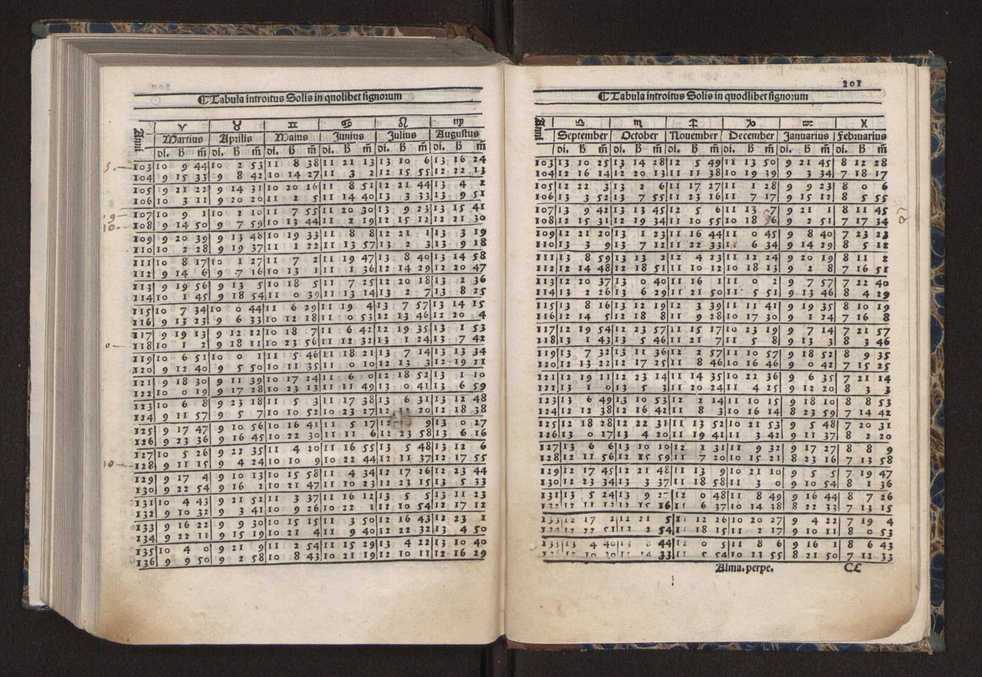 ¶Tabula introitus Solis in quolibet signorum
Anni ♈ ♉ ♊ ♋ ♌ ♍
Martius Aprilis Maius Junius Julius Augustus
di. h m̃ di. h m̃ di. h m̃ di. h m̃ di. h m̃ di. h m̃
103 10 9 44 10 2 53 11 8 38 11 21 13 13 10 6 13 16 24
104 9 15 33 9 8 42 10 14 27 11 3 2 12 15 55 12 22 13
105 9 21 22 9 14 31 10 20 16 11 8 51 12 21 44 13 4 2
106 10 3 11 9 20 20 11 2 5 11 14 40 13 3 33 13 9 51
107 10 9 1 10 2 10 11 7 55 11 20 30 13 9 23 13 15 41
108 9 14 50 9 7 59 10 13 44 11 2 19 12 15 12 12 21 30
109 9 20 39 9 13 48 10 19 33 11 8 8 12 21 1 13 3 19
110 10 2 28 9 19 37 11 1 22 11 13 57 13 2 3 13 9 18
111 10 8 17 10 1 27 11 7 2 11 19 47 13 8 40 13 14 58
112 9 14 6 9 7 16 10 13 1 11 1 36 12 14 29 12 20 47
113 9 19 56 9 13 5 10 18 5 11 7 25 12 20 18 13 2 36
114 10 1 45 9 18 54 11 0 39 11 13 14 13 2 7 13 8 25
115 10 7 34 10 0 44 11 6 29 11 19 4 13 7 57 13 14 15
116 9 13 23 9 6 33 10 12 18 11 0 53 12 13 46 12 20 4
117 9 19 13 9 12 22 10 18 7 11 6 42 12 19 35 13 1 53
118 10 1 2 9 18 11 10 23 56 11 12 32 13 1 24 13 7 42
119 10 6 51 10 0 1 11 5 46 11 18 21 13 7 14 13 13 34
120 9 12 40 9 5 50 10 11 35 11 0 10 12 13 3 12 19 11
121 9 18 30 9 11 39 10 17 24 11 6 0 12 18 52 13 1 10
122 10 0 19 9 17 28 10 23 13 11 11 49 13 0 41 13 6 59
123 10 6 8 9 23 18 11 5 3 11 17 38 13 6 31 13 12 48
124 9 11 57 9 5 7 10 10 52 10 23 17 20 12 18 38
125 9 17 47 9 10 56 10 16 41 11 5 17 9 13 0 27
126 9 23 36 9 16 45 10 22 30 11 11 6 12 23 58 13 6 16
127 10 5 26 9 22 35 11 4 20 11 16 55 13 5 48 13 12 6
128 9 11 15 9 4 24 10 10 9 10 22 44 12 11 37 12 17 55
129 9 17 4 9 10 13 10 15 58 11 4 34 12 17 26 12 23 44
130 9 22 54 9 16 2 10 21 47 11 10 23 12 23 15 13 5 33
131 10 4 43 9 21 52 11 3 37 11 16 12 13 5 5 13 11 23
132 9 10 32 9 3 41 10 9 26 10 22 1 12 10 54 12 17 12
133 9 16 22 9 9 30 10 15 15 11 3 50 12 16 43 12 23 1
134 9 22 11 9 15 19 10 21 4 11 9 40 12 22 32 13 4 50
135 10 4 0 9 21 9 11 2 54 11 15 29 13 4 22 13 10 40
136 9 9 50 9 2 58 10 8 43 10 21 19 12 10 11 12 16 29
201
¶Tabula introitus Solis in quodlibet signorum
Anni ♎ ♏ ♐ ♑ ♒ ♓
September October November December Januarius Februarius
di. h m̃ di. h m̃ di. h m̃ di. h m̃ di. h m̃ di. h m̃
103 13 10 25 13 14 28 12 5 49 11 13 50 9 21 45 8 12 28
104 12 16 14 12 20 17 11 11 38 10 19 39 9 3 34 7 18 17
105 12 22 3 13 2 6 11 17 27 11 1 28 9 9 23 8 0 6
106 13 3 52 13 7 55 11 23 16 11 7 17 9 15 12 8 5 55
107 13 9 42 13 13 45 12 5 6 11 13 7 9 21 1 8 11 45
108 12 15 31 12 19 34 11 10 55 10 18 56 9 2 51 7 17 34
109 12 21 20 13 1 23 11 16 44 11 0 45 9 8 40 7 23 23
110 13 3 9 13 7 12 11 22 33 11 6 34 9 14 29 8 5 12
111 13 8 59 13 13 2 12 4 23 11 12 24 9 20 19 8 11 2
112 12 14 48 12 18 51 11 10 12 10 18 13 9 2 8 7 16 51
113 12 20 37 13 0 40 11 16 1 11 0 2 9 7 57 7 22 40
114 13 2 26 13 6 29 11 21 50 11 5 51 9 13 46 8 4 29
115 13 8 16 13 12 19 12 3 39 11 11 41 9 19 35 8 10 19
116 12 14 5 12 18 8 11 9 28 10 17 30 9 1 24 7 16 8
117 12 19 54 12 23 57 11 15 17 10 23 19 9 7 14 7 21 57
118 13 1 43 13 5 46 11 21 7 11 5 8 9 13 3 8 3 46
119 13 7 32 13 11 36 12 2 57 11 10 57 9 18 52 8 9 35
120 12 13 21 12 17 25 11 8 46 10 16 46 9 0 42 7 15 25
121 12 19 11 12 23 14 11 14 35 10 22 36 9 6 35 7 21 14
122 13 1 0 13 5 3 11 20 24 11 4 25 9 12 20 8 3 3
123 13 6 49 13 10 53 12 2 14 11 10 15 9 18 10 8 8 53
124 12 12 38 12 16 42 11 8 3 10 16 14 8 23 59 7 14 42
125 12 18 28 12 22 31 11 13 52 10 21 53 9 5 48 7 20 31
126 13 0 17 13 4 20 11 19 41 11 3 42 9 11 37 8 2 20
127 13 6 13 10 10 12 2 31 11 9 32 9 17 27 8 8 9
128 12 11 56 12 15 59 11 7 20 10 15 21 8 23 16 7 13 58
129 12 17 45 12 21 48 11 13 9 10 21 10 9 5 5 7 19 47
130 12 23 34 13 3 37 11 18 58 11 3 0 9 10 54 8 1 36
131 13 5 24 13 9 27 12 0 48 11 8 49 9 16 44 8 7 26
132 15 16 11 6 37 10 14 38 8 22 33 7 13 15
133 12 17 2 12 21 5 11 12 26 10 20 27 9 4 22 7 19 4
134 2 54 11 18 15 11 2 17 9 10 11 8 0 53
135 13 4 40 44 12 0 5 11 8 6 9 16 1 8 6 43
136 33 11 5 54 10 13 55 8 21 50 7 11 33
Alma. perpe. CC